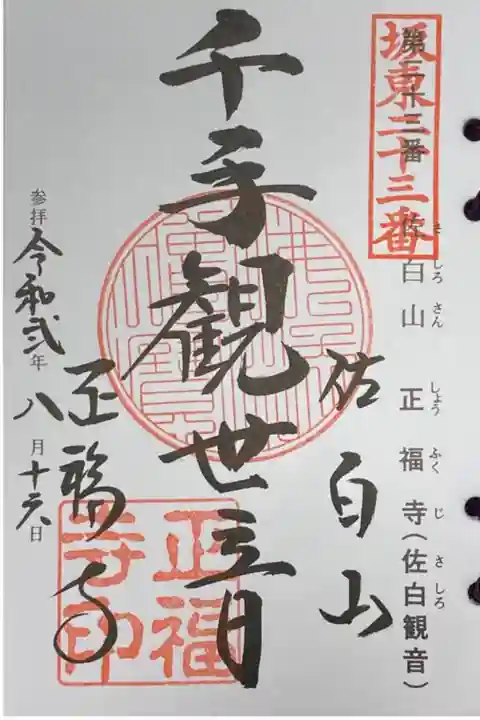 坂東二十三番
第二十三番 佐白山 正福寺(佐白観音)
さしろさん しょうふくじ さしろ
佐白山
千手観世音
正福寺
正福寺印
参拝 令和弐年 八月十六日